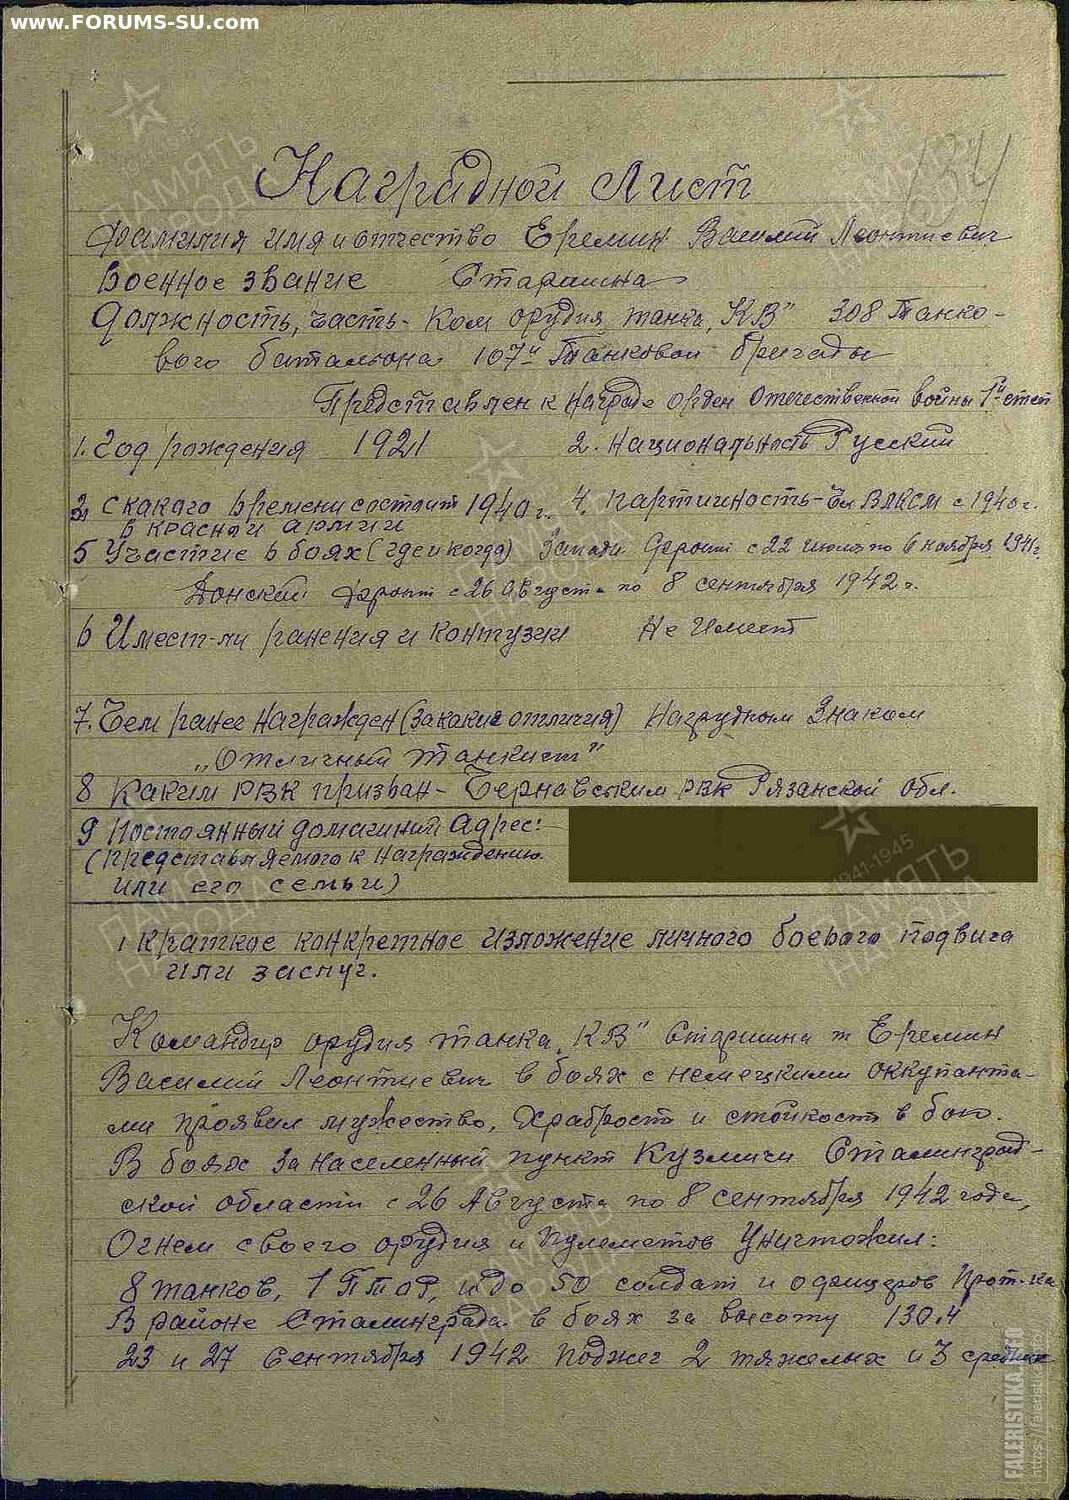 www.FORUMS-SU.com
134
Наградной Лист
Фамилия имя и отчество Еремин Василий Леонтиевич
Военное звание Старшина
Должность, часть - Ком орудия танка „КВ" 308 Танко-
вого батальона 107й Танковой бригады
Представлен к Награде орден Отечественной войны 1й степ
1. Год рождения 1921 2. Национальность Русский
3 с какого времени состоит 1940 г. 4. партийность - Чл ВЛКСМ с 1940 г.
в красной армии
5 Участие в боях (где и когда) Западн Фронт с 22 июля по 6 ноября 1941г
Донской фронт с 26 августа по 8 сентября 1942 г.
6 Имеет-ли ранения и контузии Не Имеет
7. Чем ранее награжден (за какие отличия) Нагрудным Знаком
„Отличный танкист"
8 Каким РВК призван - Чернавским РВК Рязанской обл.
9 Постоянный домашний Адрес:
(представляемого к награждению
или его семьи)
1 Краткое конкретное изложение личного боевого подвига
или заслуг.
Командир орудия танка „КВ" Старшина т Еремин
Василий Леонтиевич в боях с немецкими оккупанта-
ми проявил мужество, храбрость и стойкость в бою.
В боях за населенный пункт Кузмичи Сталинград-
ской области с 26 Августа по 8 сентября 1942 года,
Огнем своего орудия и пулеметов Уничтожил:
8 танков, 1 ПТОР, и до 50 солдат и офицеров прот-ка
В районе Сталинграда в боях за высоту 130,4
23 и 27 Сентября 1942 поджег 2 тяжелых и 3 средних
ПАМЯТЬ НАРОДА
1941-1945
FALERISTIKA.INFO